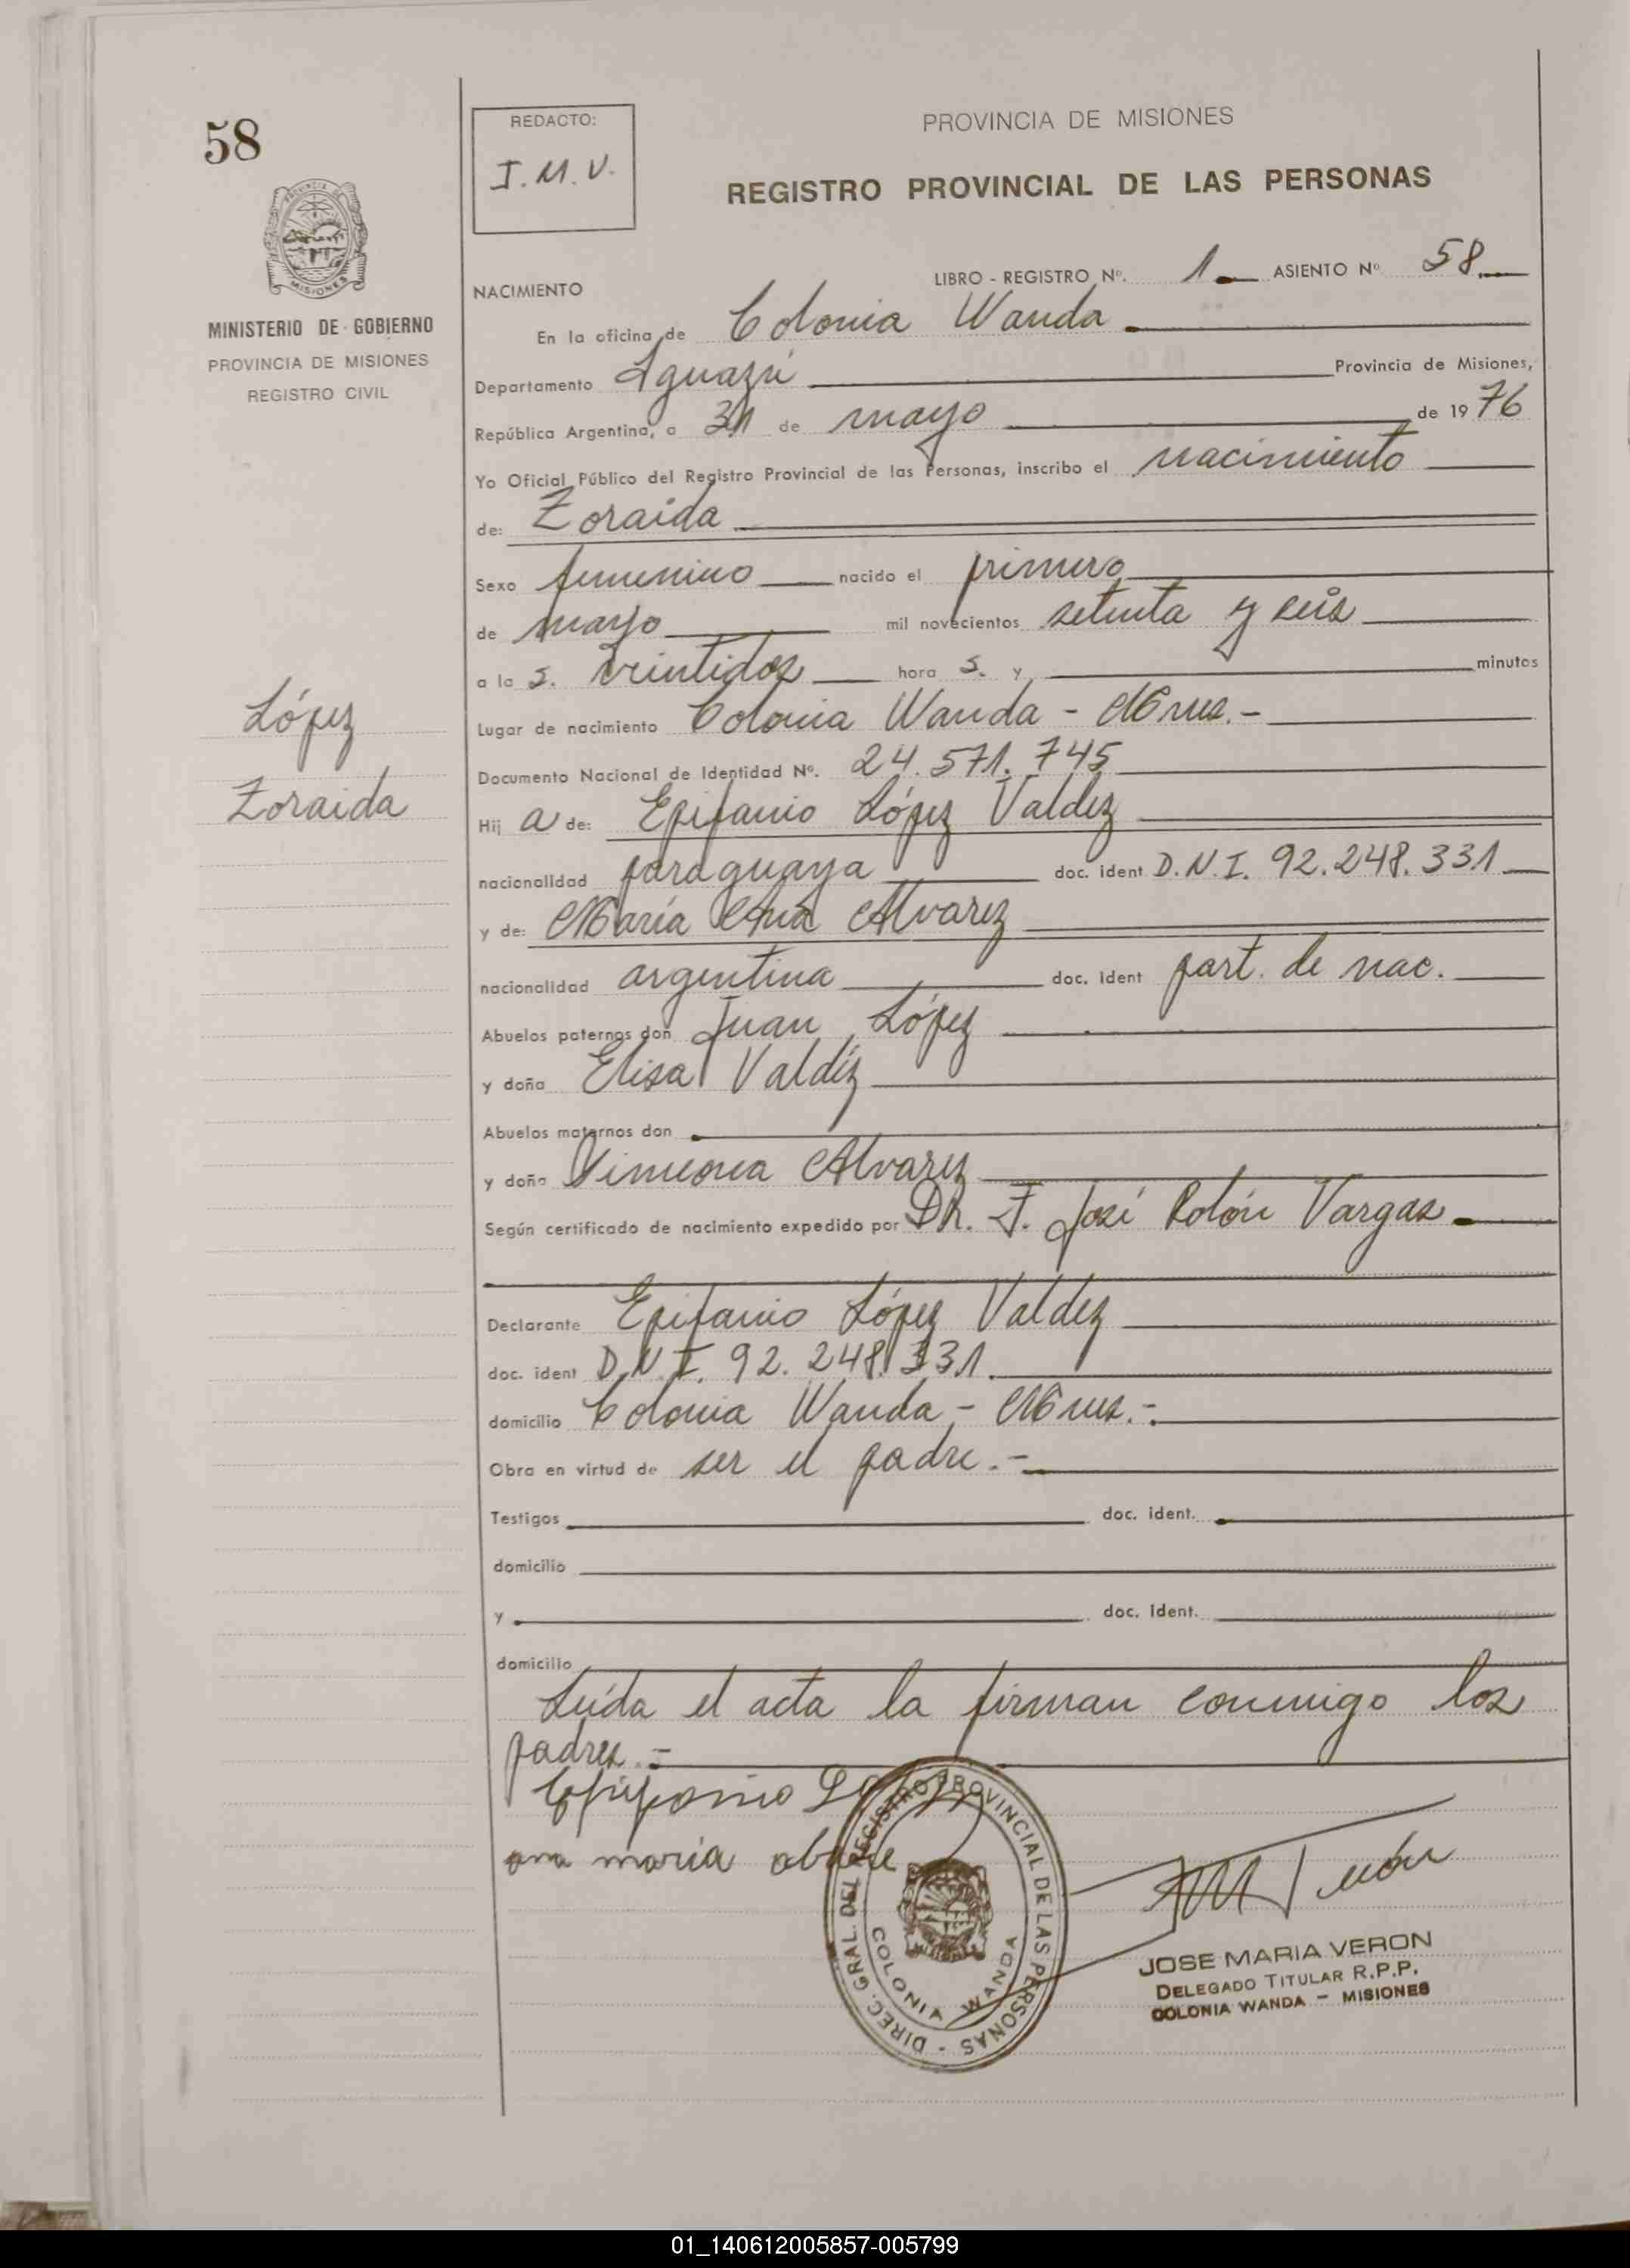 58
REDACTO:
J. M. V.
PROVINCIA DE MISIONES
REGISTRO PROVINCIAL DE LAS PERSONAS
PROVINCIA DE
MISIONES
MINISTERIO DE GOBIERNO
PROVINCIA DE MISIONES
REGISTRO CIVIL
LIBRO - REGISTRO Nº. 1 ASIENTO Nº 58
NACIMIENTO
En la oficina de Colonia Wanda
Departamento Iguazú Provincia de Misiones,
República Argentina, a 31 de mayo de 1976
Yo Oficial Público del Registro Provincial de las Personas, inscribo el nacimiento
de: Zoraida
Sexo femenino nacido el primero
de mayo mil novecientos setenta y seis
a la s. veintidos hora s. y minutos
Lugar de nacimiento Colonia Wanda - Mnes.-
Documento Nacional de Identidad Nº. 24.571.745
López
Zoraida
Hij a de: Epifanio López Valdez
nacionalidad paraguaya doc. ident D.N.I. 92.248.331
y de: María Ana Alvarez
nacionalidad argentina doc. ident part. de nac.
Abuelos paternos don Juan López
y doña Elisa Valdéz
Abuelos maternos don
y doña Alvarez
Según certificado de nacimiento expedido por Dr. F. José Rolón Vargas
Declarante Epifanio López Valdez
doc. ident D.N.I. 92.248.331.
domicilio Colonia Wanda - Mnes.-
Obra en virtud de ser el padre.-
Testigos doc. ident.
domicilio
y doc. ident.
domicilio
Leída el acta la firman conmigo los
padres.-
Epifanio
ana maria
DIREC. GRAL. DEL REGISTRO PROVINCIAL DE LAS PERSONAS -
COLONIA WANDA
JOSE MARIA VERON
DELEGADO TITULAR R.P.P.
COLONIA WANDA - MISIONES
01_140612005857-005799